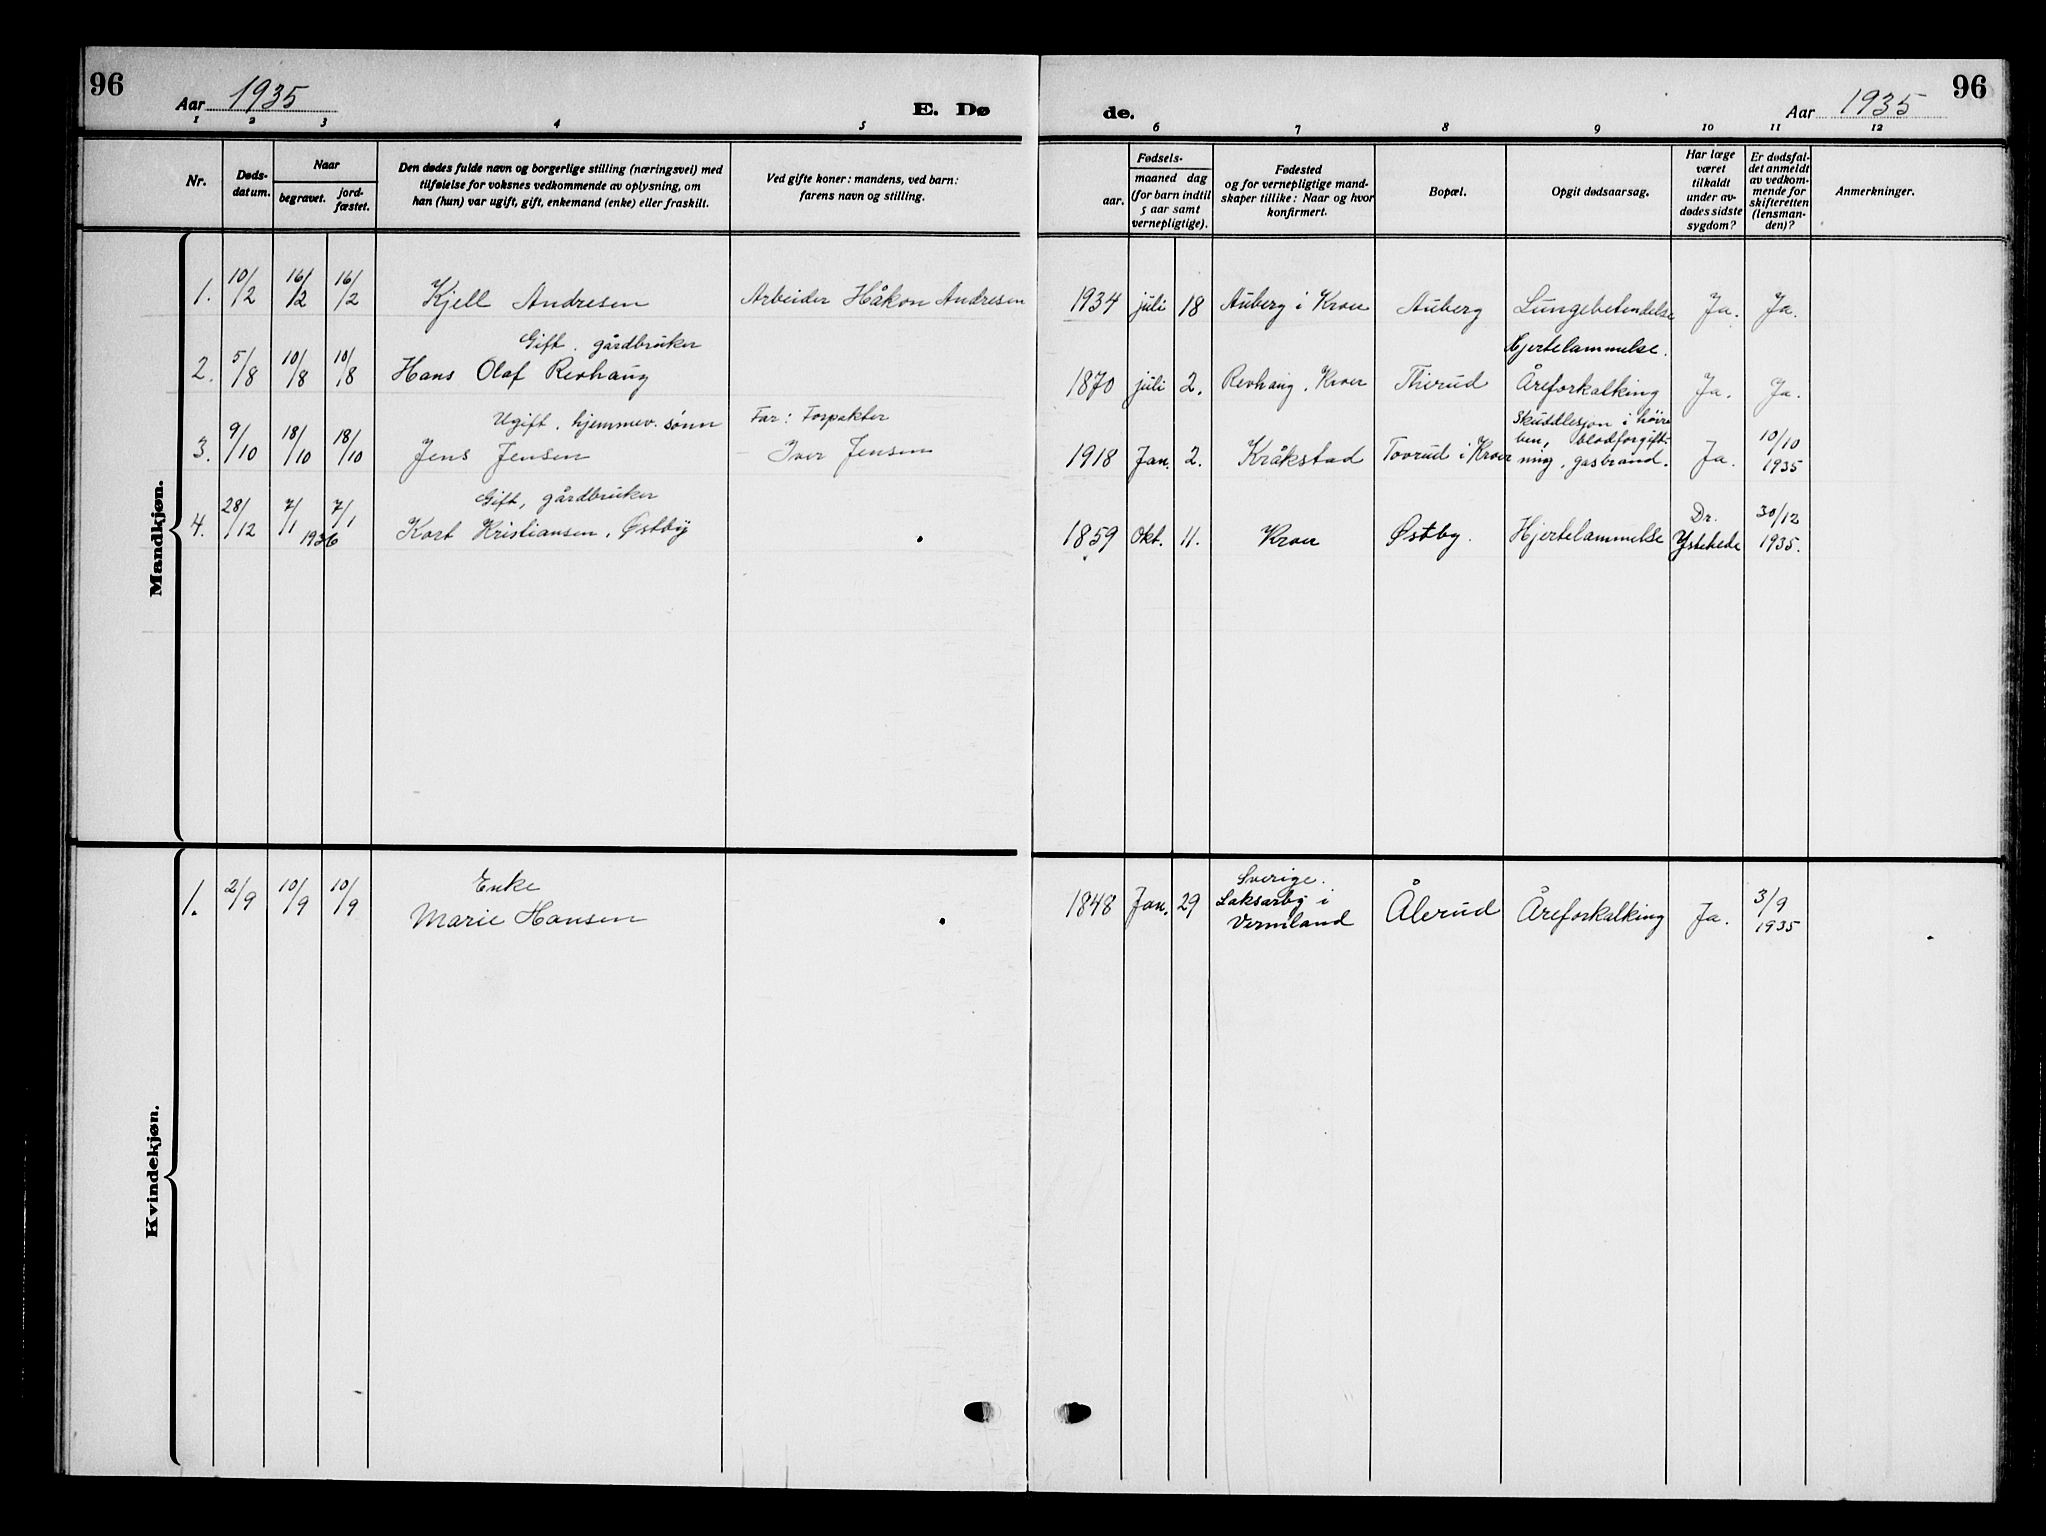 96
Aar 1935
E. Dø
de.
Aar 1935
96
1 2 3 4 5 6 7 8 9 10 11 12
Nr.
Døds-
datum.
Naar
begravet.
jord-
fæstet.
Den dødes fulde navn og borgerlige stilling (næringsvei) med
tilføielse for voksnes vedkommende av oplysning, om
han (hun) var ugift, gift, enkemand (enke) eller fraskilt.
Ved gifte koner: mandens, ved barn:
farens navn og stilling.
Fødsels-
aar.
maaned dag
(for barn indtil
5 aar samt
vernepligtige).
Fødested
og for vernepligtige mand-
skaper tillike: Naar og hvor
konfirmert.
Bopæl.
Opgit dødsaarsag.
Har læge
været
tilkaldt
under av-
dødes sidste
sygdom?
Er dødsfal-
det anmeldt
av vedkom-
mende for
skifteretten
(lensman-
den)?
Anmerkninger.
Mandkjøn.
1. 10/2 16/2 16/2 Kjell Andresen Arbeider Håkon Andresen 1934 juli 18 Auberg i Kroer Auberg Lungebetendelse Ja. Ja.
Gift. gårdbruker Hjertelammelse.
2. 5/8 10/8 10/8 Hans Olaf Revhaug 1870 juli 2. Revhaug, Kroer Thirud Åreforkalking Ja. Ja.
Ugift, hjemmev. sønn Far: Forpakter Skuddlesjon i høire
3. 9/10 18/10 18/10 Jens Jensen Iver Jensen 1918 Jan. 2. Kråkstad Tovrud i Kroer ben, blodforgift-
ning, gasbrand. Ja. 10/10
1935
Gift, gårdbruker
4. 28/12 7/1 7/1 1936 Kort Kristiansen, Østby 1859 Okt. 11. Kroer Østby. Hjertelammelse Dr.
Ystehede 30/12
1935.
Kvindekjøn.
Enke Sverige.
1. 2/9 10/9 10/9 Marie Hansen 1848 Jan. 29 Laksarby i
Vermland Ålerud Åreforkalking Ja. 3/9
1935